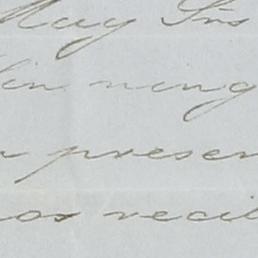 Muy Srs
Sin ning
presen
nos recib